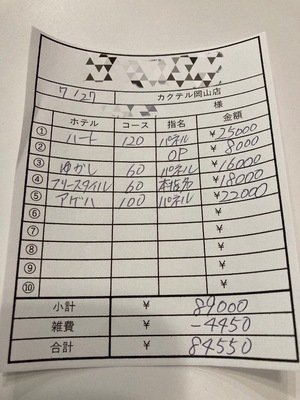 7/27 カクテル岡山店
様
ホテル コース 指名 金額
① ハート 120 パネル ¥25000
② OP ¥8000
③ ゆかし 60 パネル ¥16000
④ フリースタイル 60 本指名 ¥18000
⑤ アゲハ 100 パネル ¥22000
⑥ ¥
⑦ ¥
⑧ ¥
⑨ ¥
⑩ ¥
小計 ¥ 89000
雑費 ¥ -4450
合計 ¥ 84550